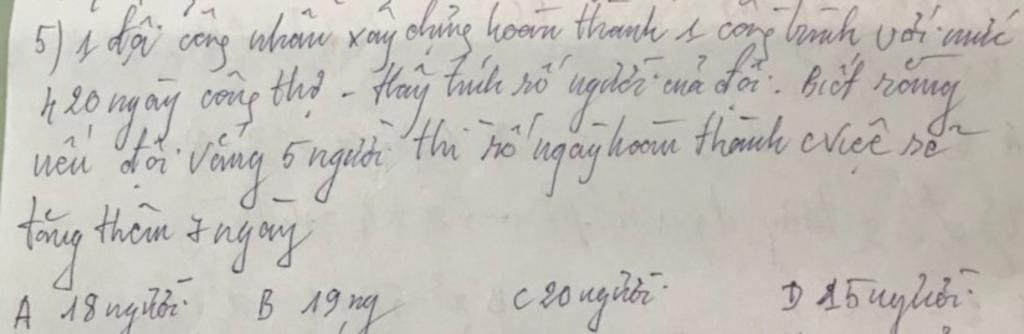 5) 1 đội công nhân xây dựng hoàn thành 1 công trình với mức
420 ngày công thợ - Hãy tính số người của đội. Biết rằng
nếu đội vắng 5 người thì số ngày hoàn thành cviệc sẽ
tăng thêm 7 ngày
A 18 người B 19 ng C 20 người D 15 người